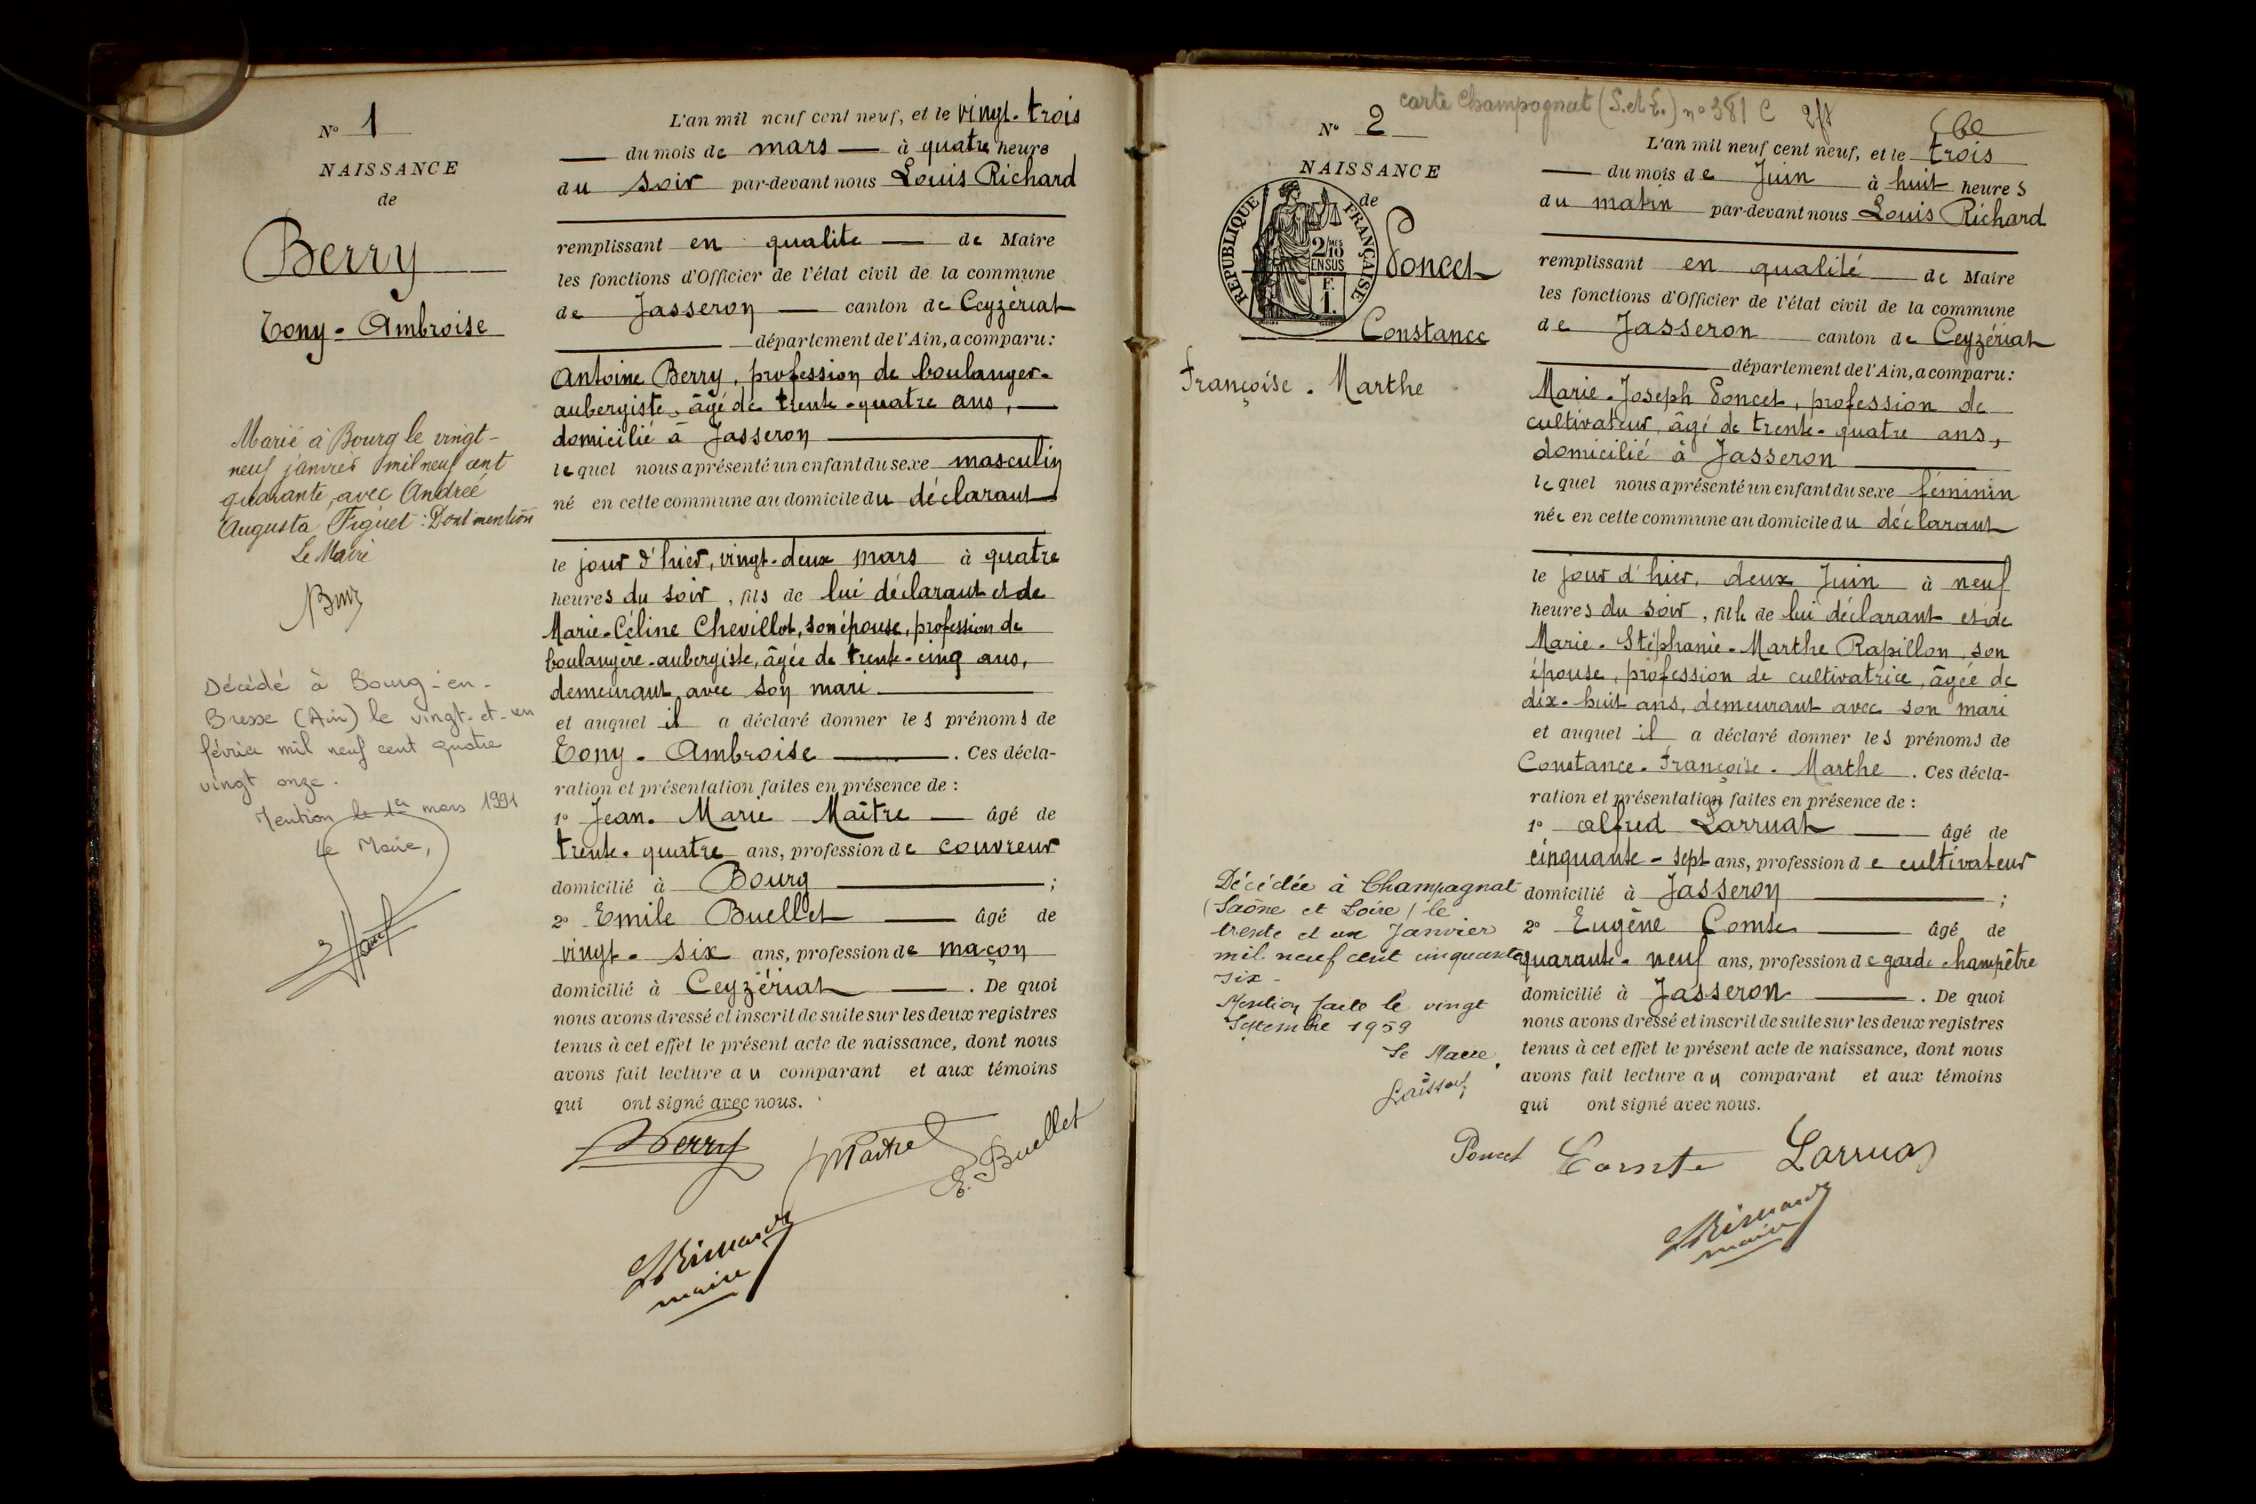 N° 1
NAISSANCE
de
Berry
Tony - Ambroise
Marié à Bourg le vingt-
neuf janvier mil neuf cent
quarante, avec Andrée
Augusta Figuet : Dont mention
Le Maire
Décédé à Bourg-en-
Bresse (Ain) le vingt-et-un
février mil neuf cent quatre
vingt onze.
Mention le 1er mars 1991
Le Maire,
L'an mil neuf cent neuf, et le vingt-trois
du mois de mars à quatre heure
du soir par-devant nous Louis Richard
remplissant en qualite de Maire
les fonctions d'Officier de l'état civil de la commune
de Jasseron canton de Ceyzériat
département de l'Ain, a comparu :
Antoine Berry, profession de boulanger-
aubergiste, âgé de trente-quatre ans,
domicilié à Jasseron
lequel nous a présenté un enfant du sexe masculin
né en cette commune au domicile du déclarant
le jour d'hier, vingt-deux mars à quatre
heures du soir, fils de lui déclarant et de
Marie-Céline Chevillot, son épouse, profession de
boulangère-aubergiste, âgée de trente-cinq ans,
demeurant avec son mari
et auquel il a déclaré donner les prénoms de
Tony - Ambroise . Ces décla-
ration et présentation faites en présence de :
1° Jean-Marie Maître âgé de
trente-quatre ans, profession de couvreur
domicilié à Bourg ;
2° Emile Buellet âgé de
vingt-six ans, profession de maçon
domicilié à Ceyzériat . De quoi
nous avons dressé et inscrit de suite sur les deux registres
tenus à cet effet le présent acte de naissance, dont nous
avons fait lecture au comparant et aux témoins
qui ont signé avec nous.
Berry Maitre E. Buellet
Richard
maire
carte Champagnat (S.et L.) n° 381 C
N° 2
NAISSANCE
de
REPUBLIQUE FRANÇAISE
2/10 EN SUS
F. 1.
Poncet
Constance
Françoise - Marthe
Décédée à Champagnat
(Saône et Loire) le
trente et un Janvier
mil neuf cent cinquante
six -
Mention faite le vingt
Septembre 1959
Le Maire
L'an mil neuf cent neuf, et le trois
du mois de Juin à huit heures
du matin par-devant nous Louis Richard
remplissant en qualité de Maire
les fonctions d'Officier de l'état civil de la commune
de Jasseron canton de Ceyzériat
département de l'Ain, a comparu :
Marie-Joseph Poncet, profession de
cultivateur, âgé de trente-quatre ans,
domicilié à Jasseron
lequel nous a présenté un enfant du sexe féminin
née en cette commune au domicile du déclarant
le jour d'hier, deux Juin à neuf
heures du soir, fille de lui déclarant et de
Marie-Stéphanie-Marthe Rapillon, son
épouse, profession de cultivatrice, âgée de
dix-huit ans, demeurant avec son mari
et auquel il a déclaré donner les prénoms de
Constance-Françoise-Marthe . Ces décla-
ration et présentation faites en présence de :
1° Alfred Larruat âgé de
cinquante-sept ans, profession de cultivateur
domicilié à Jasseron ;
2° Eugène Comte âgé de
quarante-neuf ans, profession de garde champêtre
domicilié à Jasseron . De quoi
nous avons dressé et inscrit de suite sur les deux registres
tenus à cet effet le présent acte de naissance, dont nous
avons fait lecture au comparant et aux témoins
qui ont signé avec nous.
Poncet Comte Larruat
Richard
maire